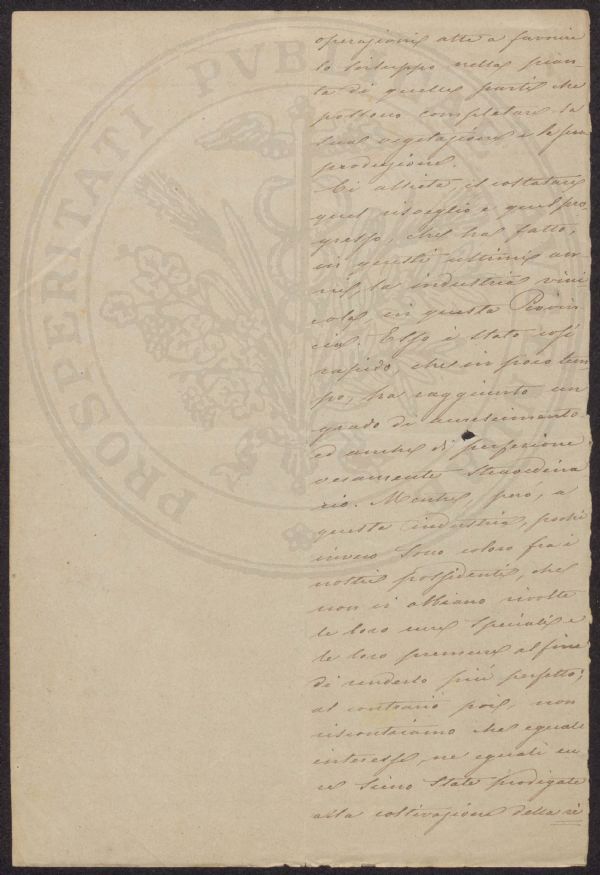 PROSPERITATI PVBLICAE
operazioni atte a favorire
lo sviluppo nella pian
ta di quelle parti che
possono completare la
sua vegetazione e la sua
produzione.
Ci allieta, il costatare
quel risveglio e quel pro
gresso, che ha fatto,
in questi ultimi an
ni, la industria vini
cola, in questa Provin
cia. Esso è stato così
rapido, che in poco tem
po, ha raggiunto un
grado di accrescimento
ed anche di perfezione
veramente straordina
rio. Mentre, però, a
questa industria, pochi
invero sono coloro fra i
nostri possidenti, che
non vi abbiano rivolte
le loro cure speciali e
le loro premure al fine
di renderlo più perfetto;
al contrario poi, non
riscontriamo che eguale
interesse, ne eguali cu
re sieno state prodigate
alla coltivazione della vi